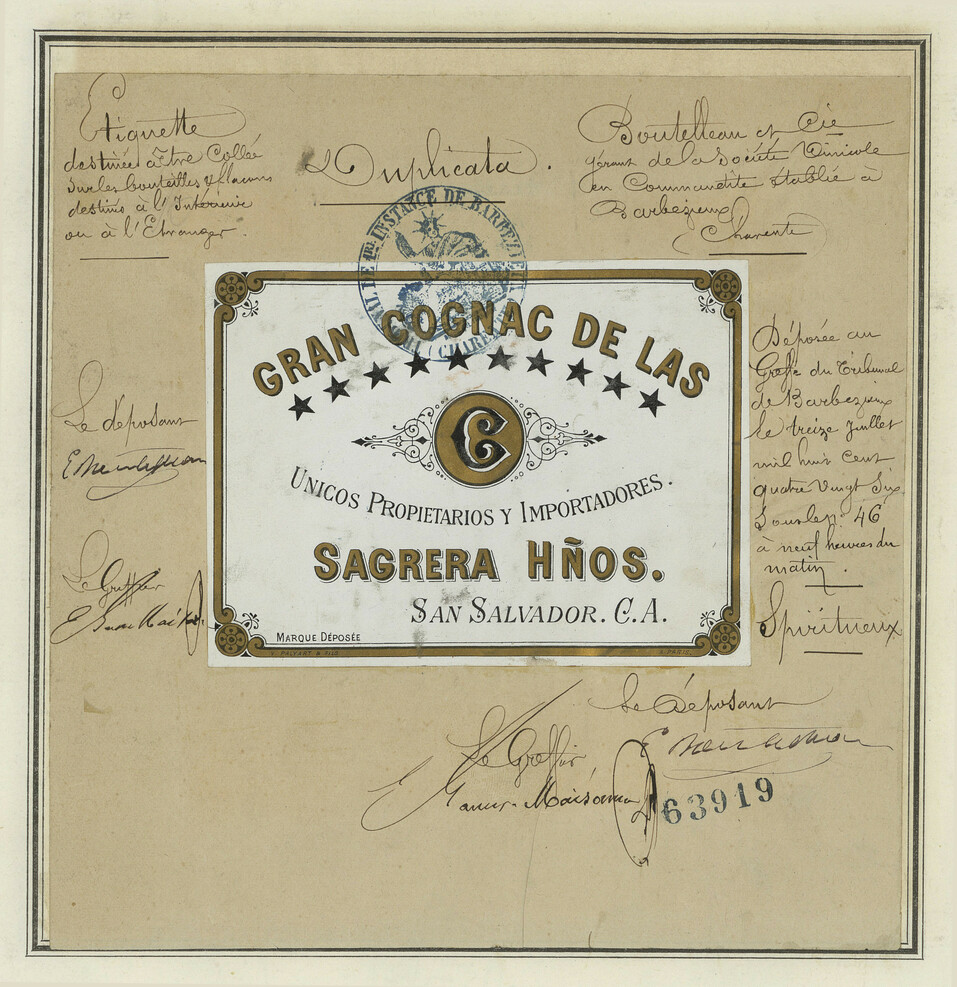 Etiquette
destinée à être Collée
sur les bouteilles & flacons
destinés à l'Intérieur
ou à l'Etranger.
Duplicata.
Boutelleau et Cie
gérant de la Société Vinicole
en Commandite établie à
Barbezieux
Charente
DE 1ère INSTANCE DE BARBEZIEUX
(CHARENTE)
GRAN COGNAC DE LAS
C
UNICOS PROPIETARIOS Y IMPORTADORES.
SAGRERA HÑOS.
SAN SALVADOR. C.A.
MARQUE DÉPOSÉE
Le déposant
Le Greffier
Déposée au
Greffe du Tribunal
de Barbezieux
le treize Juillet
mil huit cent
quatre vingt six
Sous le n° 46
à neuf heures du
matin.
Spiritueux
Le Déposant
Le Greffier
63919